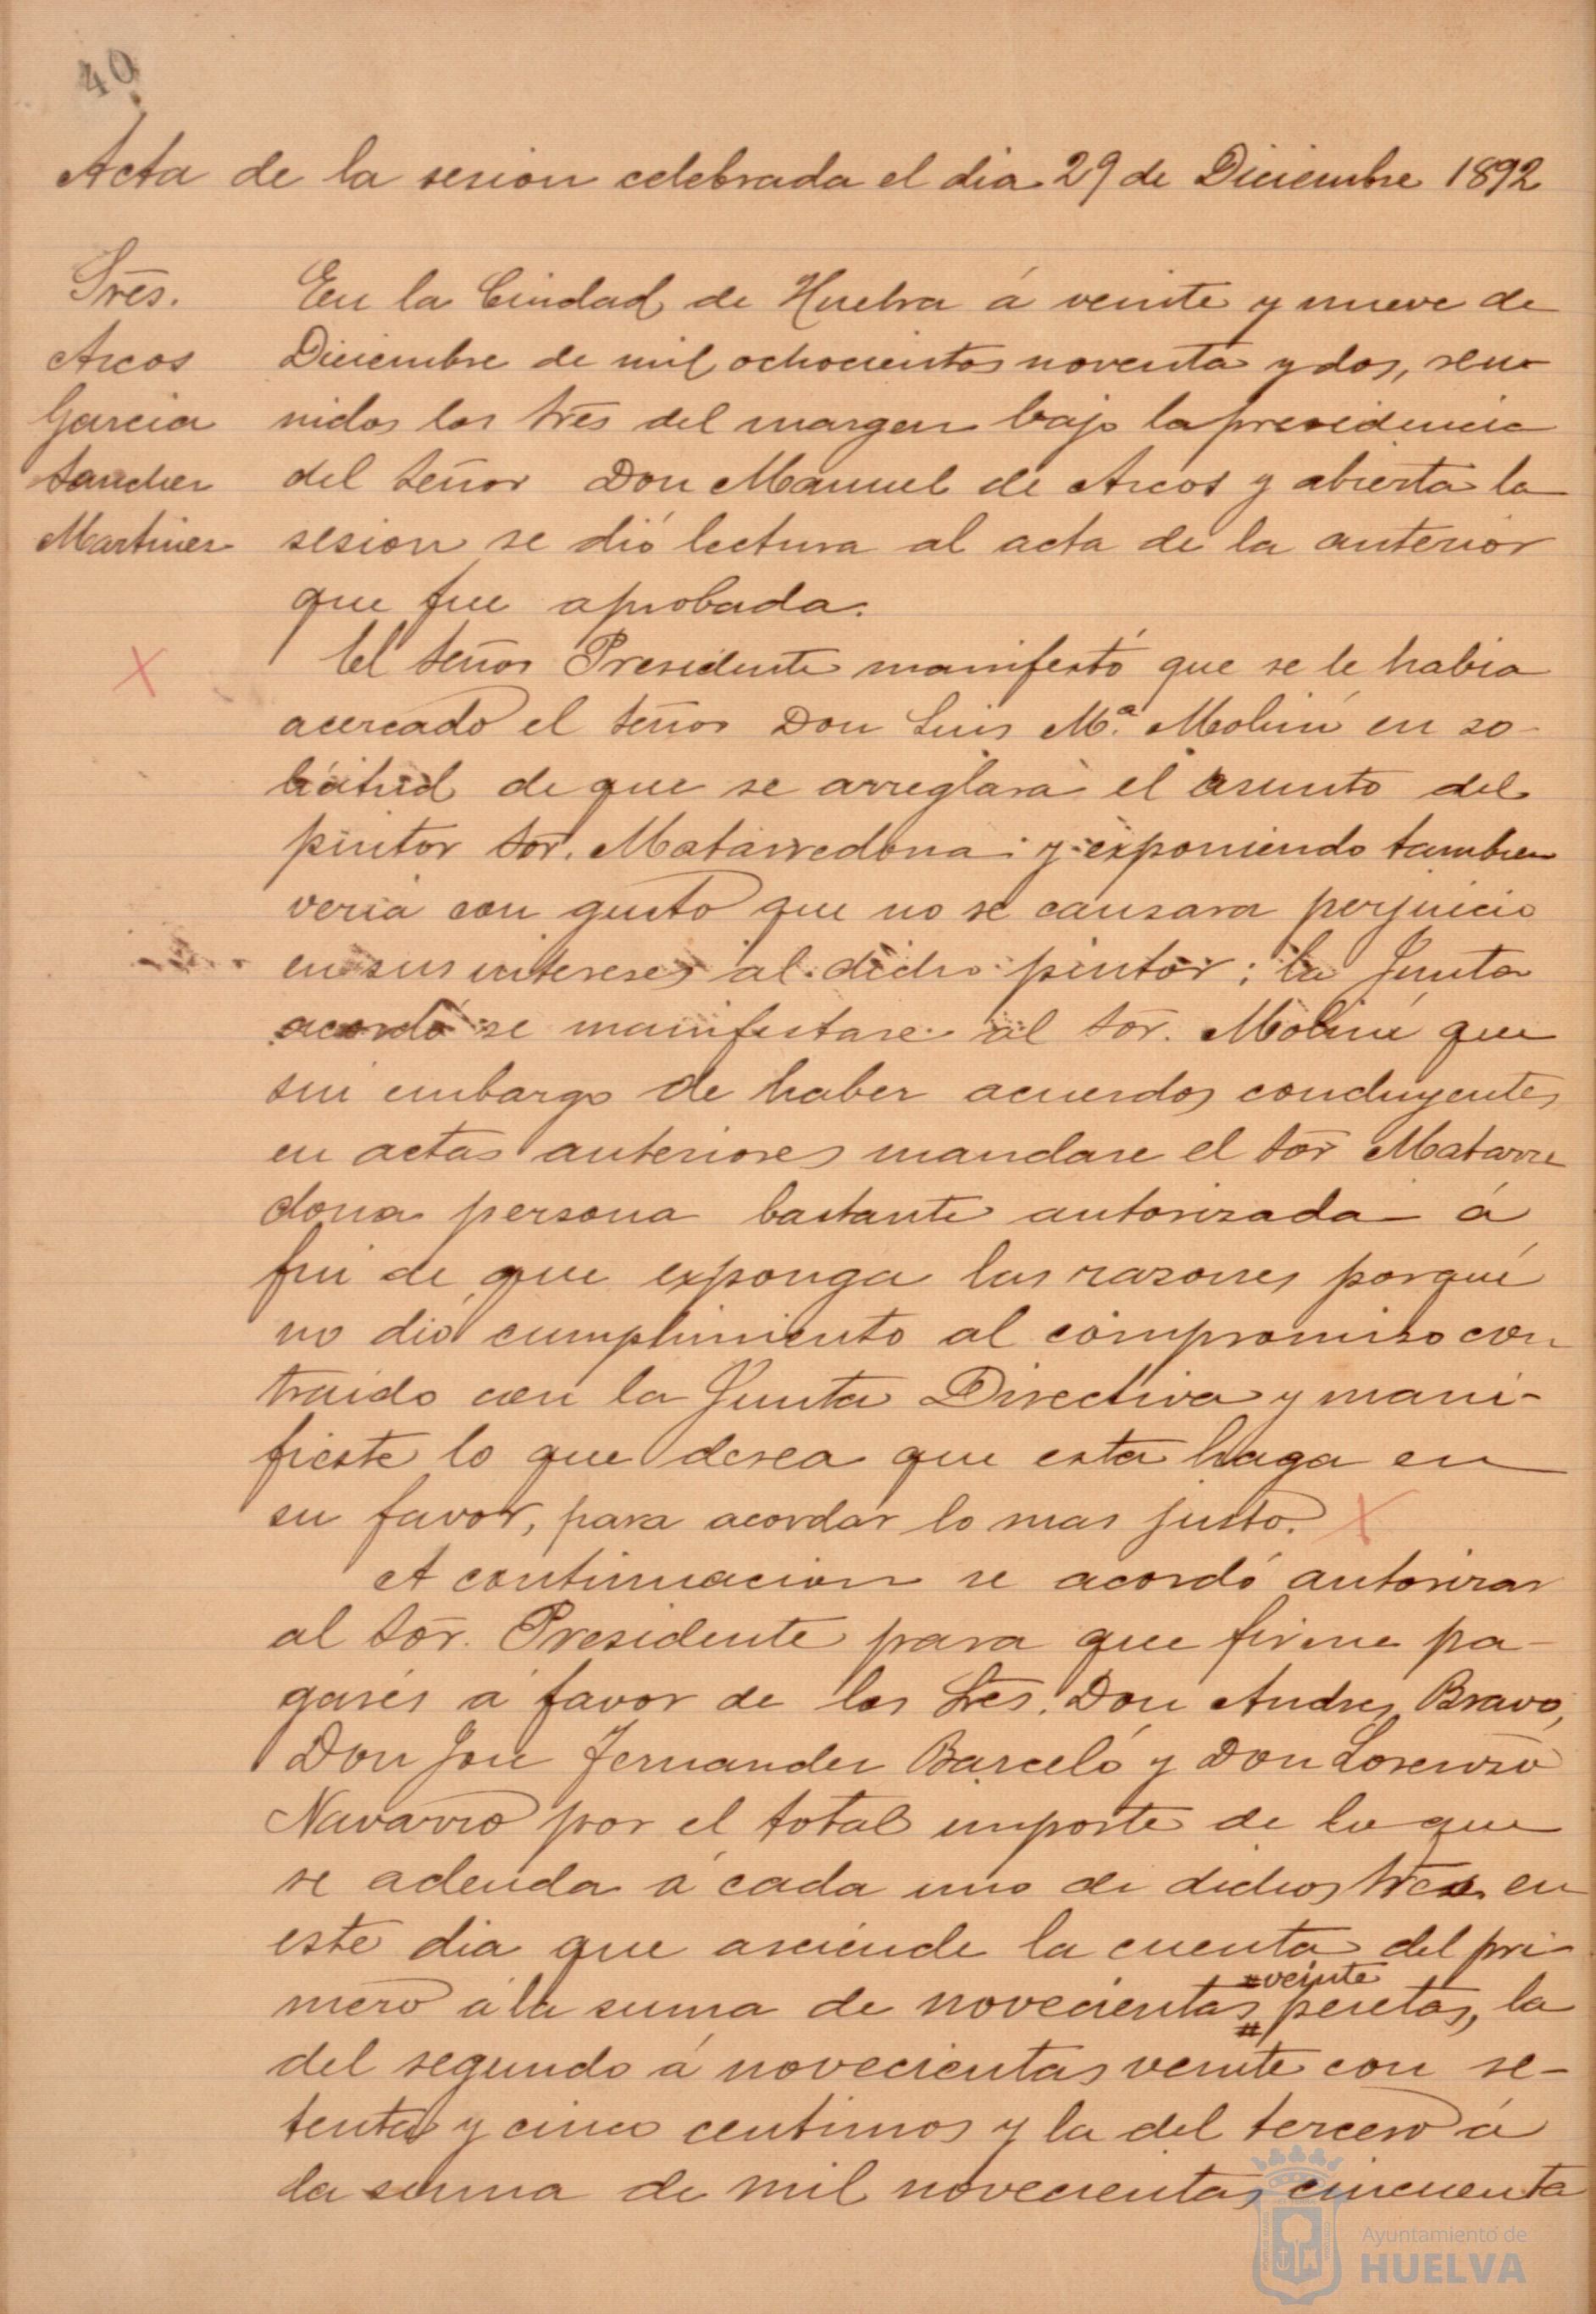 40
Acta de la sesion celebrada el dia 29 de Diciembre 1892
Sres.
Arcos
Garcia
Sanchez
Martinez
En la Ciudad de Huelva á veinte y nueve de
Diciembre de mil ochocientos noventa y dos, reu-
nidos los Sres del margen bajo la presidencia
del Señor Don Manuel de Arcos y abierta la
sesion se dió lectura al acta de la anterior
que fue aprobada.
El Señor Presidente manifestó que se le habia
acercado el Señor Don Luis Mª. Moliní en so-
licitud de que se arreglara el asunto del
pintor Sor. Matarredona y exponiendo tambien
veria con gusto que no se causara perjuicio
en sus intereses al dicho pintor; la Junta
acordó se manifestase al Sor. Moliní que
sin embargo de haber acuerdos concluyentes
en actas anteriores mandase el Sor Matarre
dona persona bastante autorizada á
fin de que exponga las razones porqué
no dió cumplimiento al compromiso con
traido con la Junta Directiva y mani-
fieste lo que desea que esta haga en
su favor, para acordar lo mas justo.
A continuacion se acordó autorizar
al Sor. Presidente para que firme pa-
garés á favor de los Sres. Don Andres Bravo,
Don José Fernandez Barceló y Don Lorenzo
Navarro por el total importe de lo que
se adeuda á cada uno de dichos Sres. en
este dia que asciende la cuenta del pri-
mero á la suma de novecientas veinte pesetas, la
del segundo á novecientas veinte con se-
tenta y cinco centimos y la del tercero á
la suma de mil novecientas cincuenta
Ayuntamiento de
HUELVA